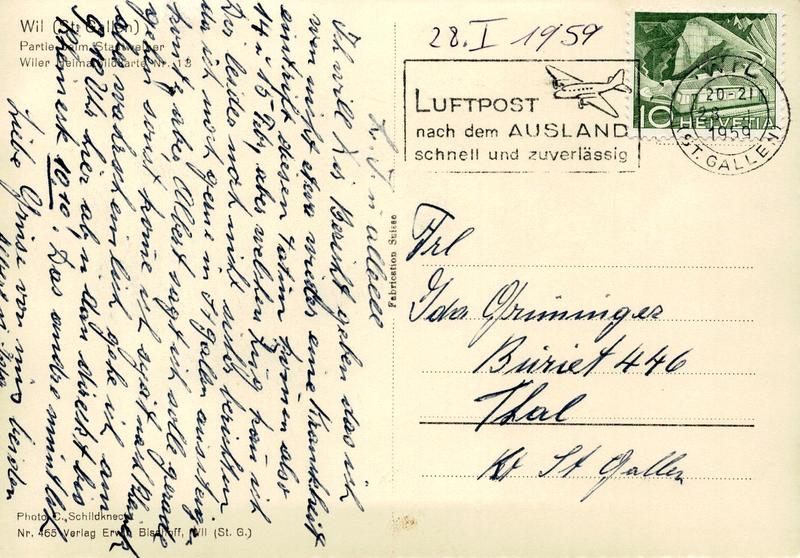 Wil (St. Gallen)
Partie beim Stadtweiher
Wiler Heimatbildkarte Nr. 13
28. I 1959
LUFTPOST
nach dem AUSLAND
schnell und zuverlässig
10 HELVETIA
WIL
20-21
1959
(ST. GALLEN)
Ich will Dis Bericht geben das ich
wen nicht etwa wieder eine Krankheit
eintrift diesen Datum kommen also
14 u 15 Feb, aber welchen Zug kan ich
Dir leider noch nicht sicher berichten
da ich noch gerne in St Gallen aussteigen
könnte, aber Albert sagt ich solle gerade
gehn sonst kome ich zu spät nach
wahrscheinlich gehe ich am
Uhr hier ab u dan direkt bis
1010. Das andre mündlich
Liebe Grüsse von mir
Fabrication Suisse
Frl
Ida Grüninger
Buriet 446
Thal
Kt St Gallen
Photo C. Schildknecht
Nr. 465 Verlag Erwin Bischoff, Wil (St. G.)